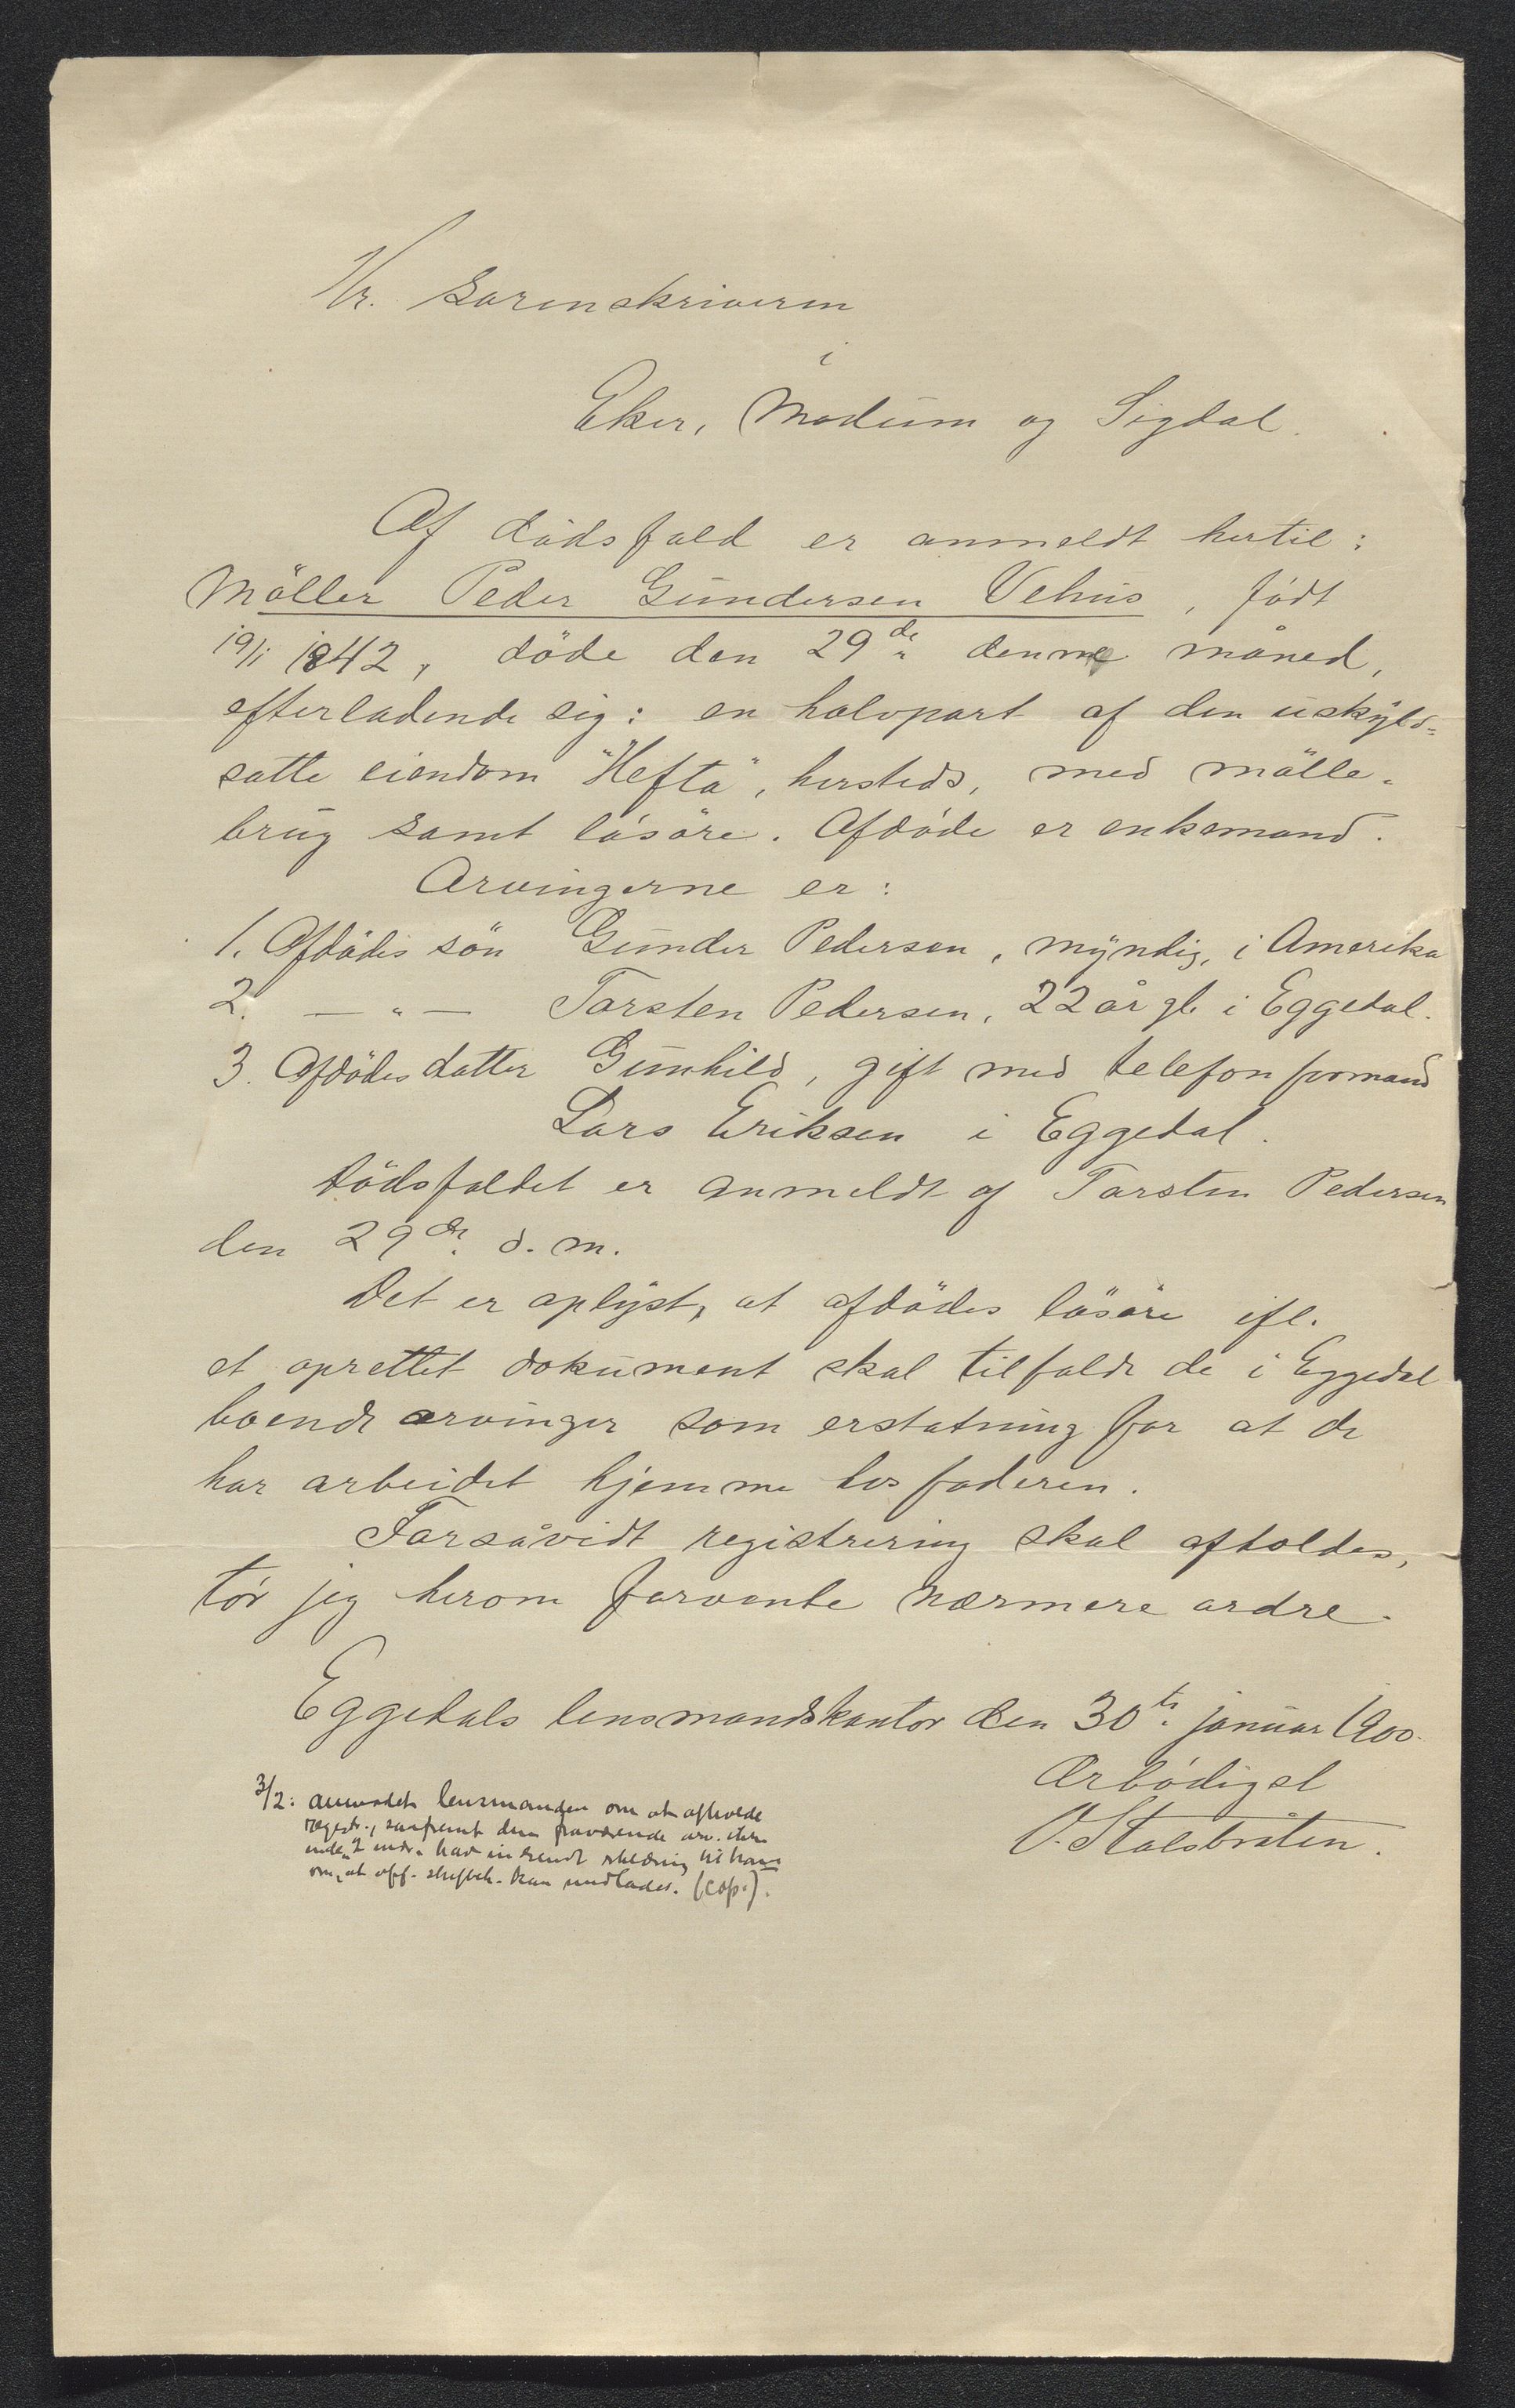 Hr. Sorenskriveren
i
Eker, Modum og Sigdal.
Af dödsfald er anmeldt hertil:
Möller Peder Gundersen Vehus, födt
19/1 1842, döde den 29de denne måned,
efterladende sig: en halvpart af den uskyld-
satte eiendom "Hefta", hersteds, med mölle-
brug samt lösöre. Afdöde er enkemand.
Arvingerne er:
1. Afdödes sön Gunder Pedersen, myndig, i Amerika
2. — " — Torsten Pedersen, 22 år gl. i Eggedal.
3. Afdödes datter Gunhild, gift med telefonformand
Lars Eriksen i Eggedal.
Dödsfaldet er anmeldt af Torsten Pedersen
den 29de d. m.
Det er oplyst, at afdödes lösöre ifl.
et oprettet dokument skal tilfalde de i Eggedal
boende arvinger som erstatning for at de
har arbeidet hjemme hos faderen.
Forsåvidt registrering skal afholdes,
tör jeg herom forvente nærmere ordre.
Eggedals lensmandskontor den 30te januar 1900.
Ærbödigst
O. Stalsbråten.
3/2: anmodet lensmanden om at afholde
registr., såfremt den fraværende arv. ikke
inden 2 mdr. har indsendt erklæring til ham
om, at off. skiftebeh. kan undlades. (cop.).